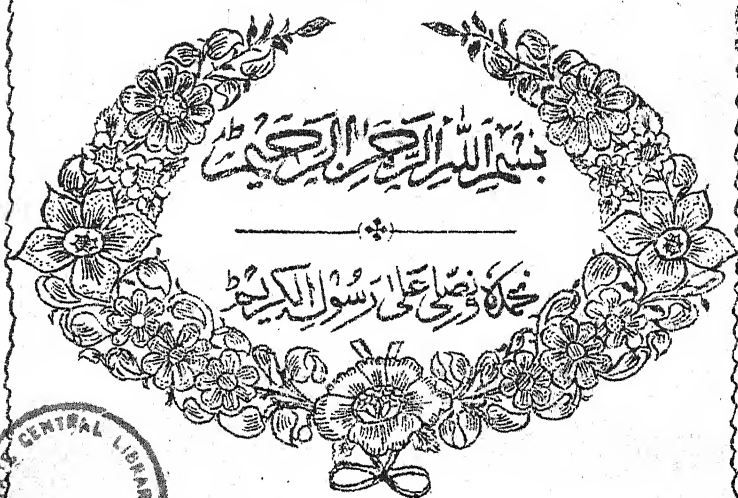 بِسْمِ اللّٰهِ الرَّحْمٰنِ الرَّحِيْمِ ؕ
نحمده و نصلی علی رسوله الکریم ؕ
CENTRAL LIBRAR